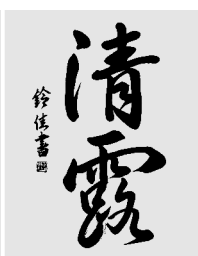 清露
鈴佳書